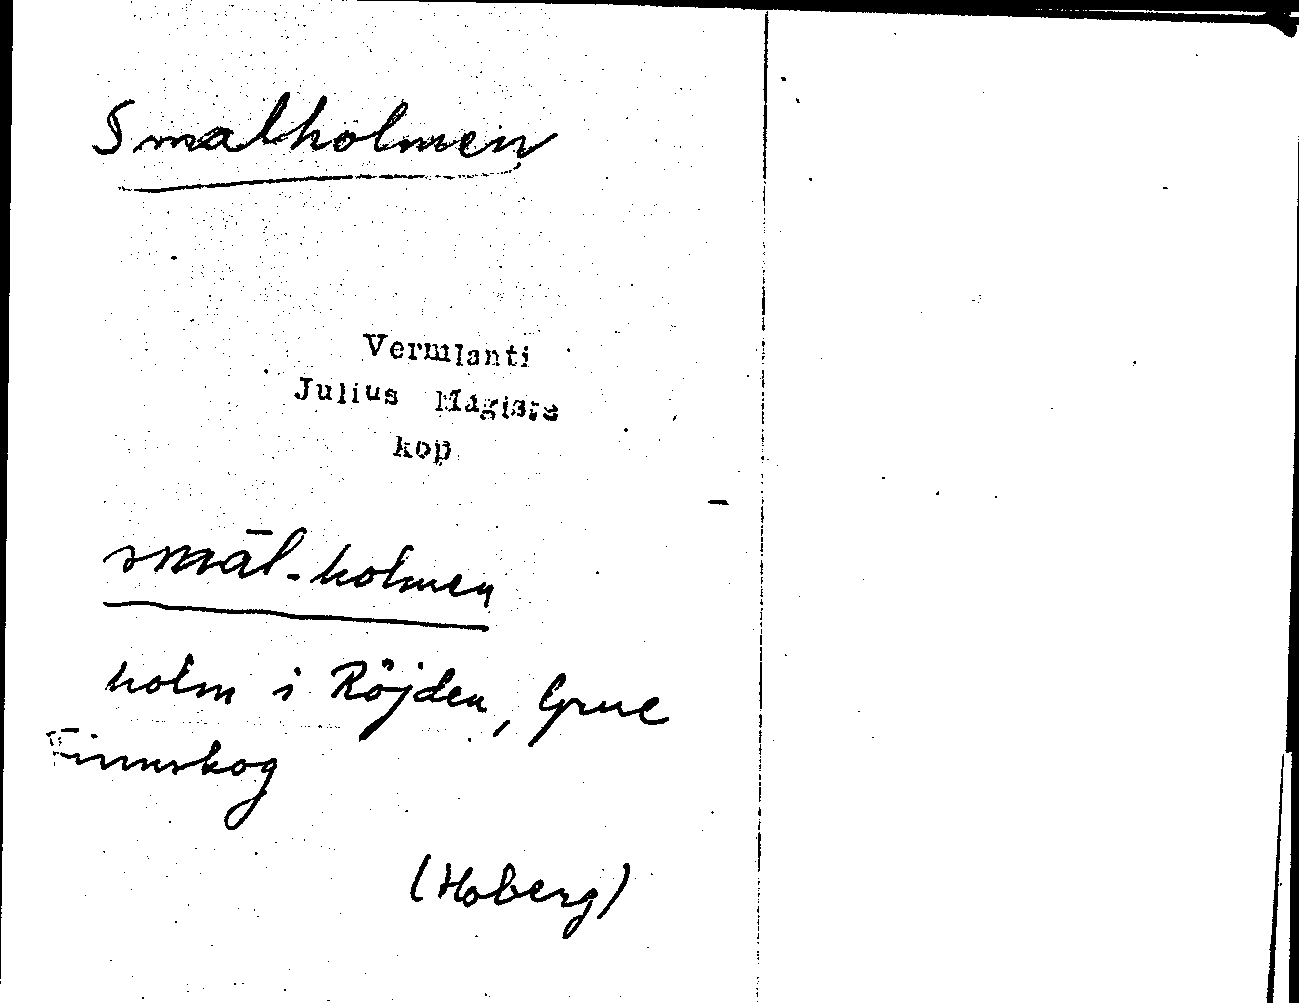 Smalholmen
Vermlanti
Julius Mägiste
kop
smāl-holmen
holm i Röjden, Grue
Finnskog
(Hoberg)